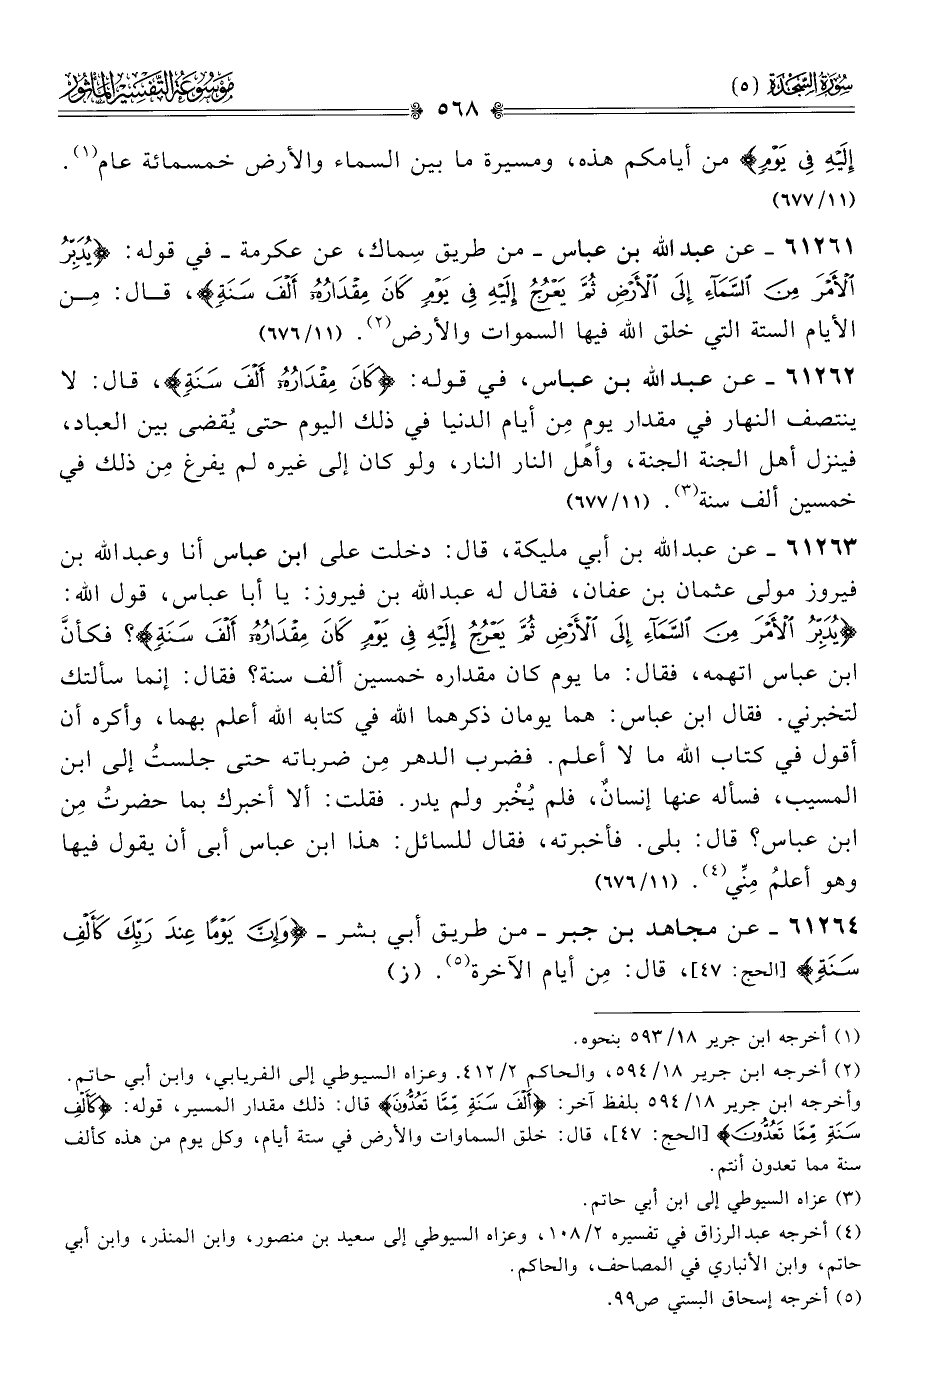 سُورَةُ السَّجْدَة (٥)
٥٦٨
مَوْسُوعَةُ التَّفْسِيرِ المَأْثُور
إِلَيْهِ فِي يَوْمٍ﴾ من أيامكم هذه، ومسيرة ما بين السماء والأرض خمسمائة عام(١).
(١١/ ٦٧٧)
٦١٢٦١ ـ عن عبدالله بن عباس ـ من طريق سِماك، عن عكرمة ـ في قوله: ﴿يُدَبِّرُ
ٱلْأَمْرَ مِنَ ٱلسَّمَآءِ إِلَى ٱلْأَرْضِ ثُمَّ يَعْرُجُ إِلَيْهِ فِي يَوْمٍ كَانَ مِقْدَارُهُۥٓ أَلْفَ سَنَةٍ﴾، قال: مِن
الأيام الستة التي خلق الله فيها السموات والأرض(٢). (١١/ ٦٧٦)
٦١٢٦٢ ـ عن عبدالله بن عباس، في قوله: ﴿كَانَ مِقْدَارُهُۥٓ أَلْفَ سَنَةٍ﴾، قال: لا
ينتصف النهار في مقدار يوم مِن أيام الدنيا في ذلك اليوم حتى يُقضى بين العباد،
فينزل أهل الجنة الجنة، وأهل النار النار، ولو كان إلى غيره لم يفرغ مِن ذلك في
خمسين ألف سنة(٣). (١١/ ٦٧٧)
٦١٢٦٣ ـ عن عبدالله بن أبي مليكة، قال: دخلت على ابن عباس أنا وعبدالله بن
فيروز مولى عثمان بن عفان، فقال له عبدالله بن فيروز: يا أبا عباس، قول الله:
﴿يُدَبِّرُ ٱلْأَمْرَ مِنَ ٱلسَّمَآءِ إِلَى ٱلْأَرْضِ ثُمَّ يَعْرُجُ إِلَيْهِ فِي يَوْمٍ كَانَ مِقْدَارُهُۥٓ أَلْفَ سَنَةٍ﴾؟ فكأنَّ
ابن عباس اتهمه، فقال: ما يوم كان مقداره خمسين ألف سنة؟ فقال: إنما سألتك
لتخبرني. فقال ابن عباس: هما يومان ذكرهما الله في كتابه الله أعلم بهما، وأكره أن
أقول في كتاب الله ما لا أعلم. فضرب الدهر مِن ضرباته حتى جلستُ إلى ابن
المسيب، فسأله عنها إنسانٌ، فلم يُخْبر ولم يدر. فقلت: ألا أخبرك بما حضرتُ مِن
ابن عباس؟ قال: بلى. فأخبرته، فقال للسائل: هذا ابن عباس أبى أن يقول فيها
وهو أعلمُ مِنِّي(٤). (١١/ ٦٧٦)
٦١٢٦٤ ـ عن مجاهد بن جبر ـ من طريق أبي بشر ـ ﴿وَإِنَّ يَوْمًا عِندَ رَبِّكَ كَأَلْفِ
سَنَةٍ﴾ [الحج: ٤٧]، قال: مِن أيام الآخرة(٥). (ز)
(١) أخرجه ابن جرير ١٨/ ٥٩٣ بنحوه.
(٢) أخرجه ابن جرير ١٨/ ٥٩٤، والحاكم ٢/ ٤١٢. وعزاه السيوطي إلى الفريابي، وابن أبي حاتم.
وأخرجه ابن جرير ١٨/ ٥٩٤ بلفظ آخر: ﴿أَلْفَ سَنَةٍ مِّمَّا تَعُدُّونَ﴾ قال: ذلك مقدار المسير، قوله: ﴿كَأَلْفِ
سَنَةٍ مِّمَّا تَعُدُّونَ﴾ [الحج: ٤٧]، قال: خلق السماوات والأرض في ستة أيام، وكل يوم من هذه كألف
سنة مما تعدون أنتم.
(٣) عزاه السيوطي إلى ابن أبي حاتم.
(٤) أخرجه عبدالرزاق في تفسيره ٢/ ١٠٨، وعزاه السيوطي إلى سعيد بن منصور، وابن المنذر، وابن أبي
حاتم، وابن الأنباري في المصاحف، والحاكم.
(٥) أخرجه إسحاق البستي ص٩٩.